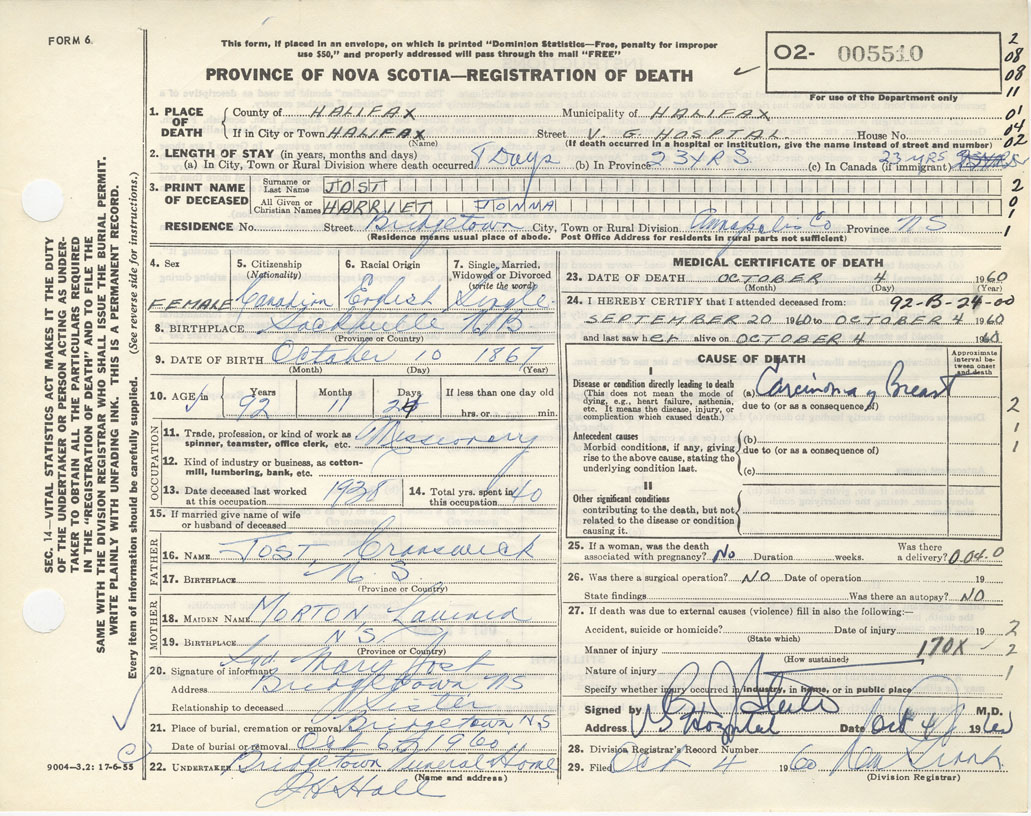 FORM 6.
This form, if placed in an envelope, on which is printed "Dominion Statistics—Free, penalty for improper
use $50," and properly addressed will pass through the mail "FREE"
PROVINCE OF NOVA SCOTIA—REGISTRATION OF DEATH
O2- 005510
For use of the Department only
2
08
08
11
01
04
02
2
0
1
1. PLACE OF DEATH
County of HALIFAX Municipality of HALIFAX
If in City or Town HALIFAX Street V. G. HOSPTAL House No.
(Name) (If death occurred in a hospital or institution, give the name instead of street and number)
2. LENGTH OF STAY (in years, months and days)
(a) In City, Town or Rural Division where death occurred 8 Days (b) In Province 23 YRS (c) In Canada (if immigrant) 23 YRS
3. PRINT NAME OF DECEASED
Surname or Last Name JOST
All Given or Christian Names HARRIET JONNA
RESIDENCE No. Street Bridgetown City, Town or Rural Division Annapolis Co Province NS
(Residence means usual place of abode. Post Office Address for residents in rural parts not sufficient)
4. Sex
FEMALE
5. Citizenship
(Nationality)
Canadian
6. Racial Origin
English
7. Single, Married, Widowed or Divorced
(write the word)
Single
8. BIRTHPLACE Sackville NB
(Province or Country)
9. DATE OF BIRTH October 10 1867
(Month) (Day) (Year)
10. AGE Years Months Days If less than one day
92 11 hrs. or min.
OCCUPATION
11. Trade, profession, or kind of work as spinner, teamster, office clerk, etc. Missionary
12. Kind of industry or business, as cotton-mill, lumbering, bank, etc.
13. Date deceased last worked at this occupation 1938
14. Total yrs. spent in this occupation 40
15. If married give name of wife or husband of deceased
FATHER
16. NAME JOST Cranswick
17. BIRTHPLACE N S.
(Province or Country)
MOTHER
18. MAIDEN NAME MORTON Lavinia
19. BIRTHPLACE N S
(Province or Country)
20. Signature of informant Sgd. Mary Jost
Address Bridgetown NS
Relationship to deceased Sister
21. Place of burial, cremation or removal Bridgetown N.S
Date of burial or removal Oct 6th 1960
22. UNDERTAKER Bridgetown Funeral Home
(Name and address)
J H Hall
MEDICAL CERTIFICATE OF DEATH
23. DATE OF DEATH OCTOBER 4 1960
(Month) (Day) (Year)
24. I HEREBY CERTIFY that I attended deceased from: 92-B-24-00
SEPTEMBER 20 1960 to OCTOBER 4 1960
and last saw her alive on OCTOBER 4 1960
CAUSE OF DEATH
Approximate interval between onset and death
I
Disease or condition directly leading to death
(This does not mean the mode of dying, e.g., heart failure, asthenia, etc. It means the disease, injury, or complication which caused death.)
(a) Carcinoma of Breast
due to (or as a consequence of)
Antecedent causes
Morbid conditions, if any, giving rise to the above cause, stating the underlying condition last.
(b)
due to (or as a consequence of)
(c)
II
Other significant conditions
contributing to the death, but not related to the disease or condition causing it.
2
1
1
25. If a woman, was the death associated with pregnancy? No Duration weeks. Was there a delivery? 004.0
26. Was there a surgical operation? NO Date of operation 19
State findings Was there an autopsy? NO
27. If death was due to external causes (violence) fill in also the following:—
Accident, suicide or homicide? Date of injury 19
(State which)
Manner of injury 170X
(How sustained)
Nature of injury
2
2
1
Specify whether injury occurred in industry, in home, or in public place
Signed by M.D.
Address VG Hospital Date Oct 4 1960
28. Division Registrar's Record Number
29. Filed Oct 4 1960
(Division Registrar)
SEC. 14—VITAL STATISTICS ACT MAKES IT THE DUTY
OF THE UNDERTAKER OR PERSON ACTING AS UNDER-
TAKER TO OBTAIN ALL THE PARTICULARS REQUIRED
IN THE "REGISTRATION OF DEATH" AND TO FILE THE
SAME WITH THE DIVISION REGISTRAR WHO SHALL ISSUE THE BURIAL PERMIT.
WRITE PLAINLY WITH UNFADING INK. THIS IS A PERMANENT RECORD.
Every item of information should be carefully supplied. (See reverse side for instructions.)
9004—3.2: 17-6-55